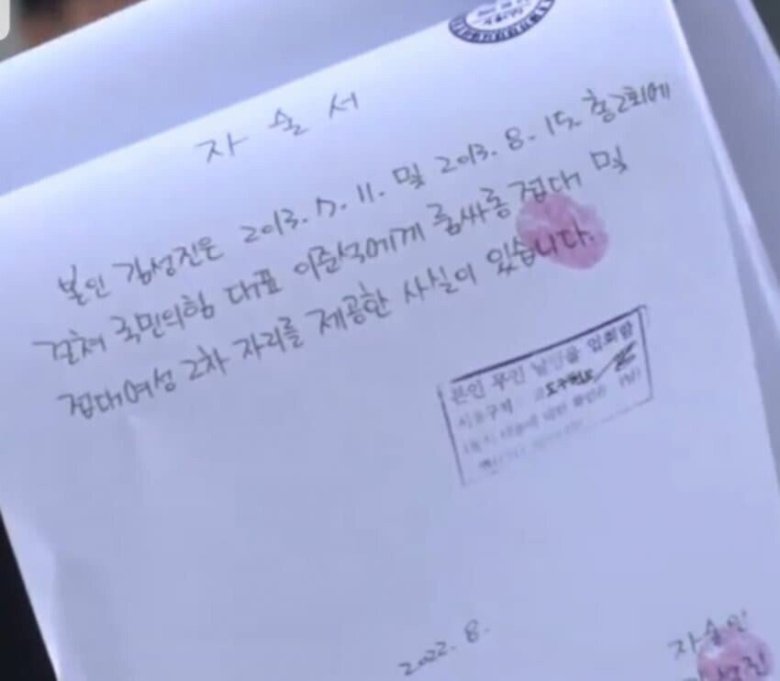 자 술 서
본인 김성진은 2013. 7. 11. 및 2013. 8. 15. 총 2회에
걸쳐 국민의힘 대표 이준석에게 룸싸롱 접대 및
접대여성 2차 자리를 제공한 사실이 있습니다.
본인 무인 날인을 입회함
서울구치소
2022. 8.
자술인
성진